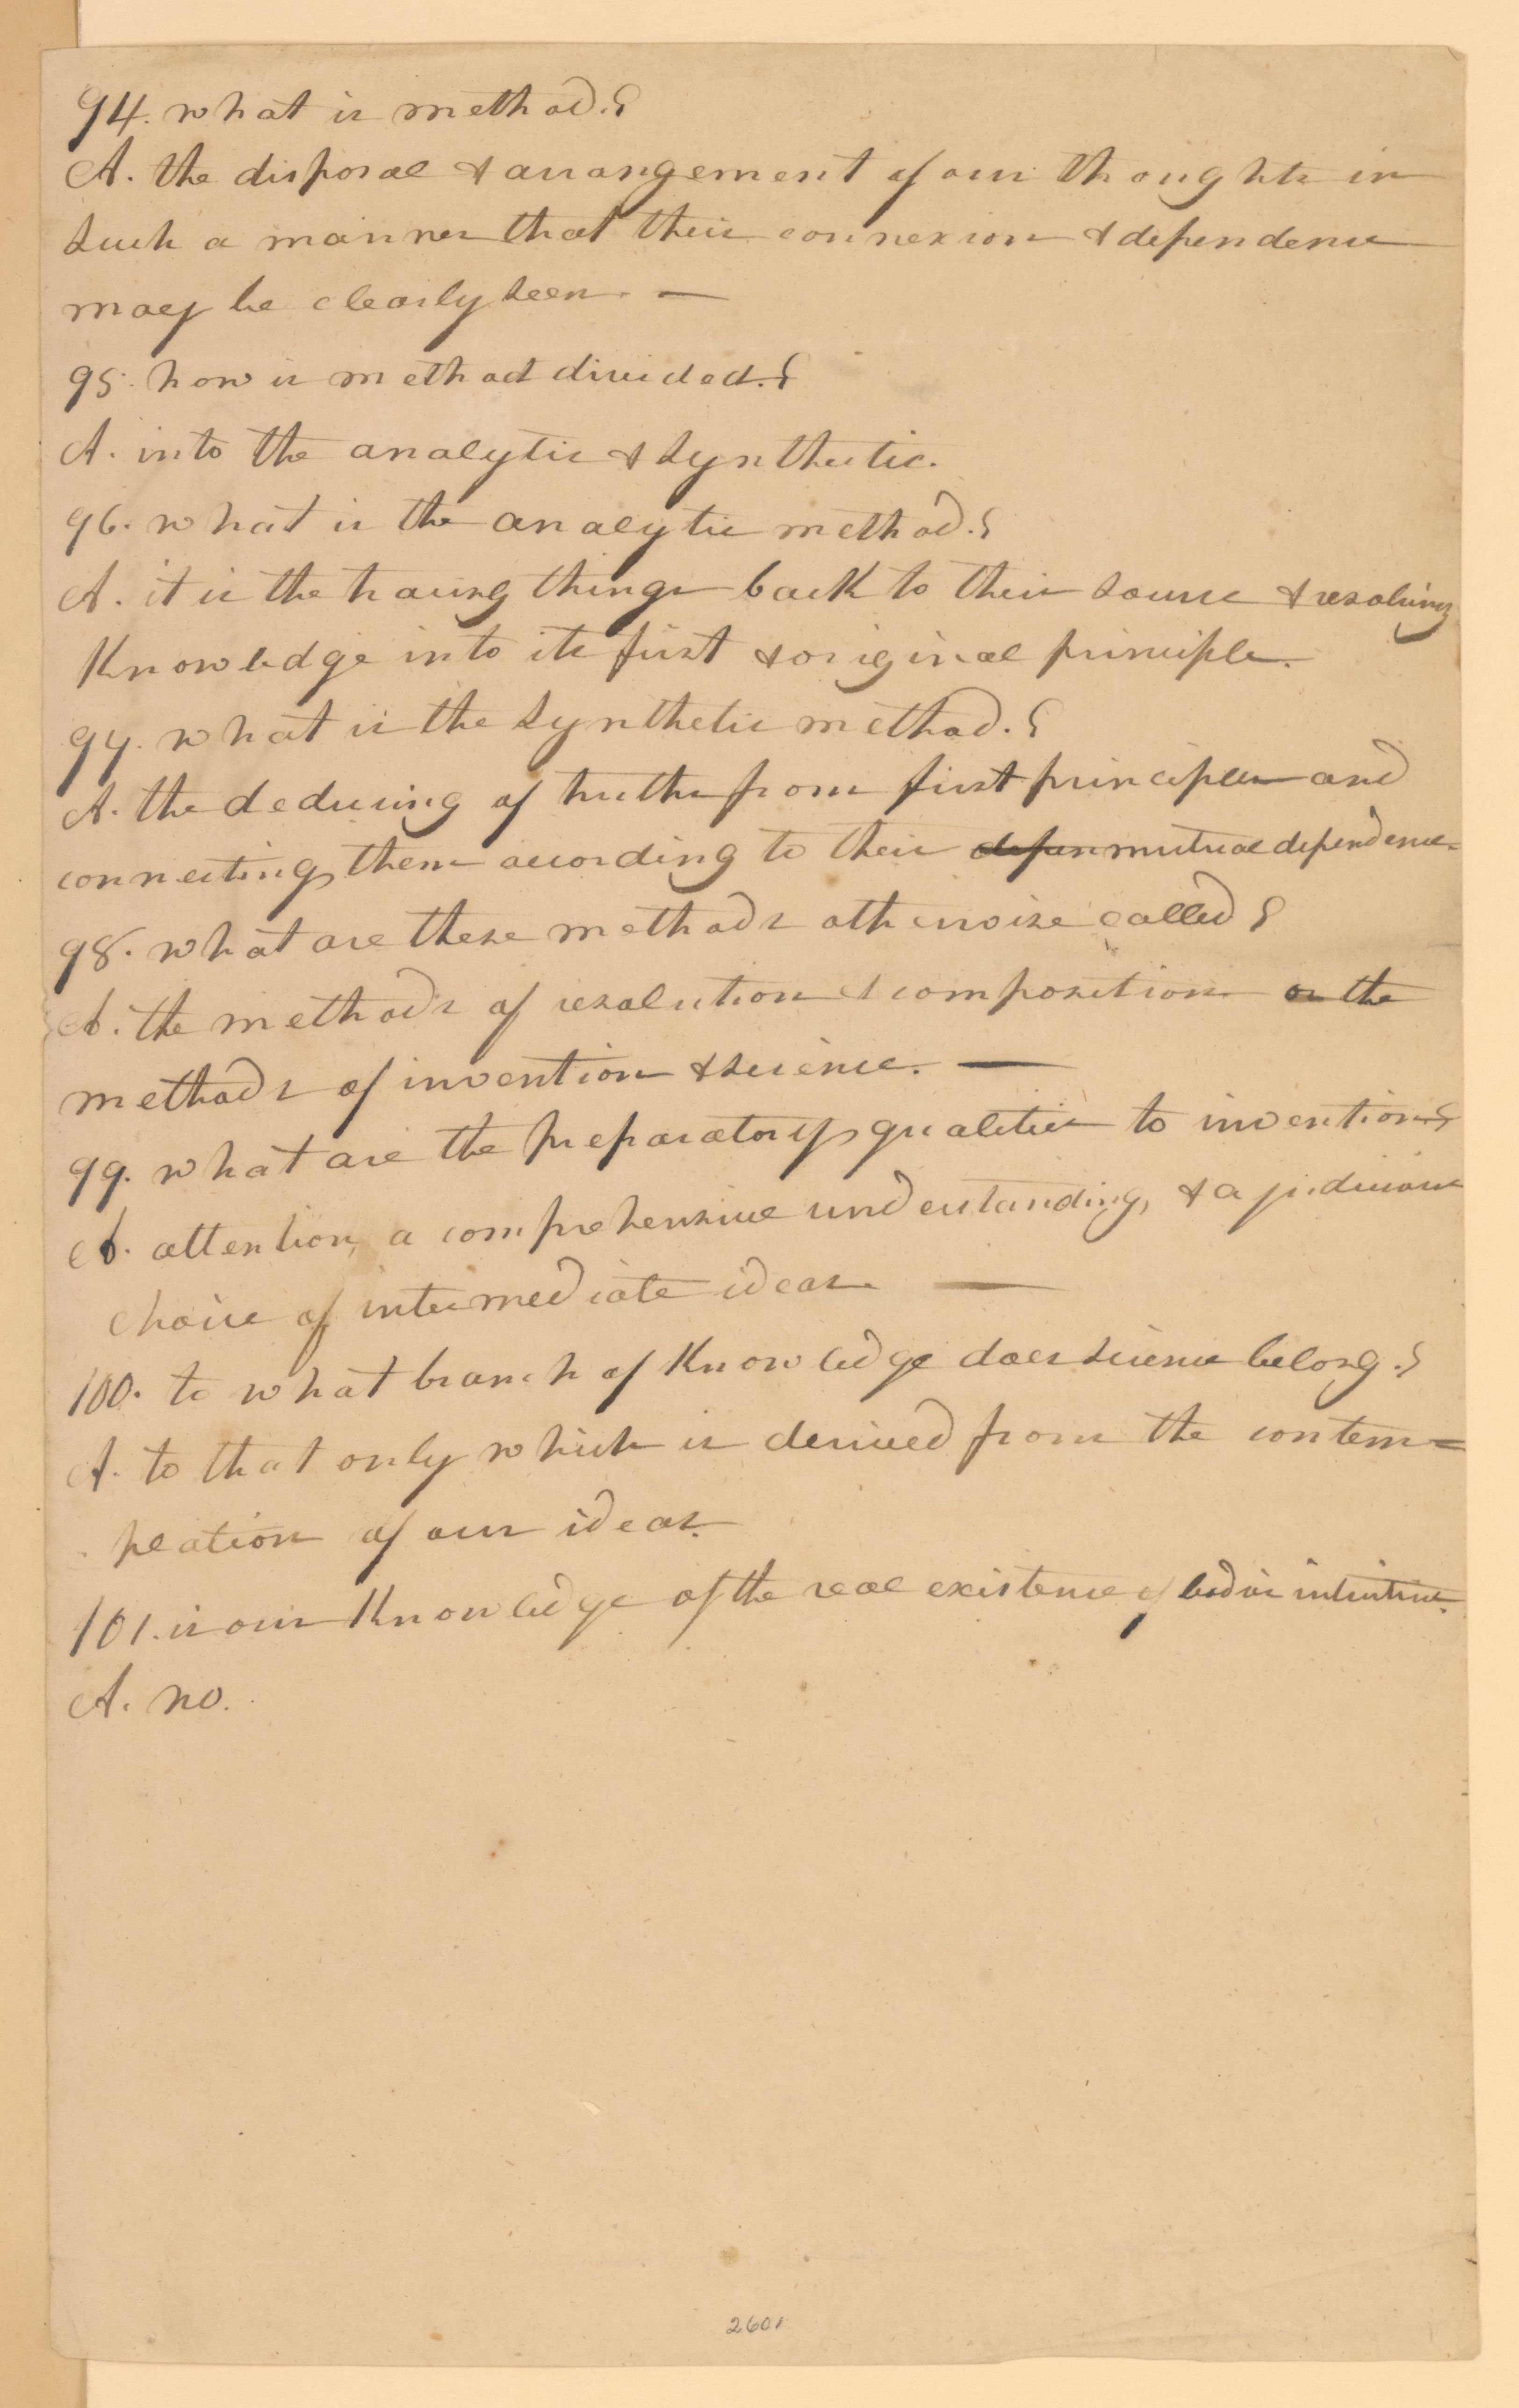 94. what is method.?
A. the disposal & arrangement of our thoughts in
such a manner that their connexion & dependence
may be clearly seen. —
95. how is method divided.?
A. into the analytic & synthetic.
96. what is the analytic method.?
A. it is the tracing things back to their source & resolving
Knowledge into its first & original principle.
97. what is the synthetic method.?
A. the deducing of truths from first principles and
connecting them according to their depen mutual dependence.
98. what are these methods otherwise called?
A. the methods of resolution & composition or the
methods of invention & science. —
99. what are the preparatory qualities to invention?
A. attention, a comprehensive understanding, & a judicious
choice of intermediate ideas. —
100. to what branch of Knowledge does science belong.?
A. to that only which is derived from the contem=
plation of our ideas.
101. is our Knowledge of the real existence of bodies intuitive.
A. no.
2601